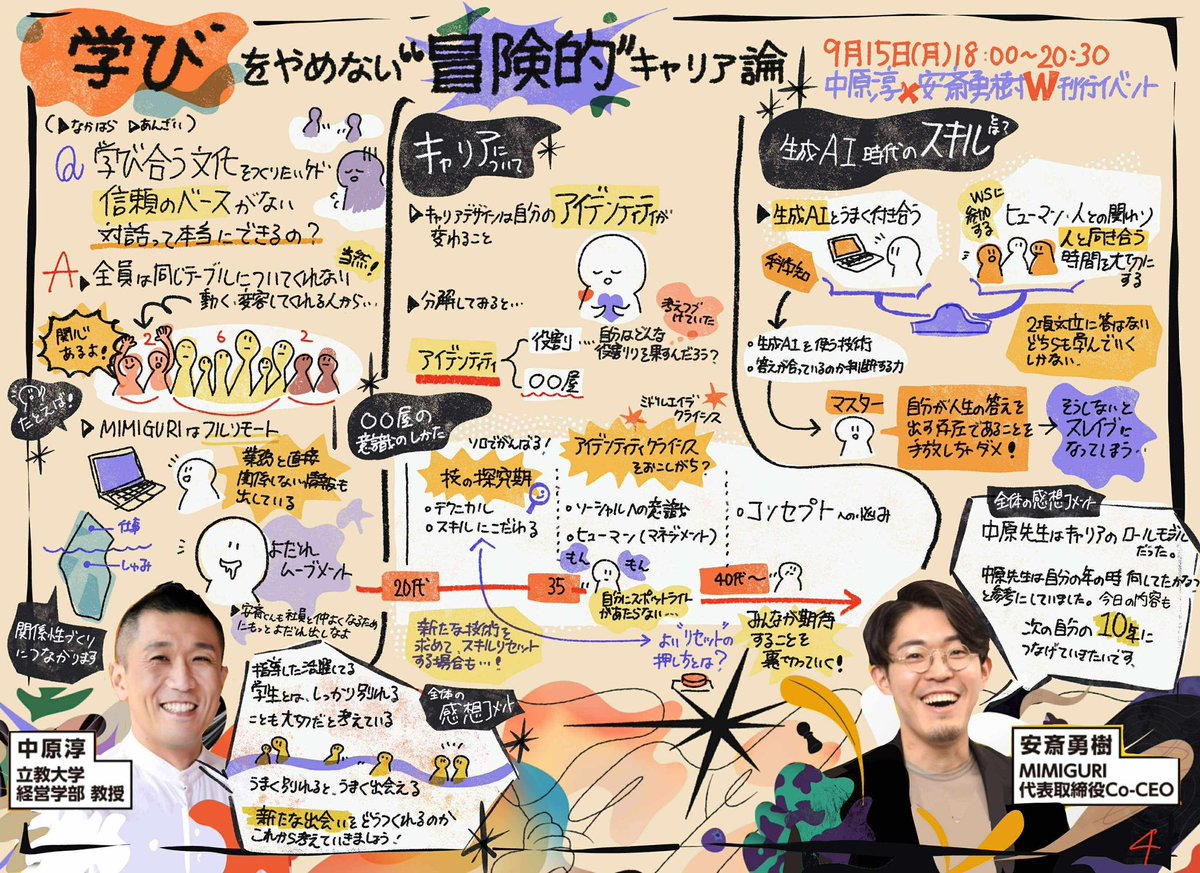 学びをやめない“冒険的”キャリア論
9月15日(月)18:00~20:30
中原淳×安斎勇樹W刊行イベント
(▶なかはら ▶あんざい)
Q 学び合う文化をつくりたいケド
信頼のベースがない
対話って本当にできるの？
A 全員は同じテーブルについてくれない
当然！
動く、変容してくれる人から…
関心あるよ！
2 6 2
たとえば！
▶MIMIGURIはフルリモート
業務と直接
関係しない情報も
出している
仕事
しゅみ
よだれ
ムーブメント
▶安斎くんも社員と仲よくなるため
にもっとよだれ出しなよ
関係性づくり
につながります
キャリアについて
▶キャリアデザインは自分のアイデンティティが
変わること
▶分解してみると…
考えつづ
けていた
アイデンティティ
役割…自分はどんな
役割りを果すんだろう？
〇〇屋
〇〇屋の
意識のしかた
ミドルエイデ
クライシス
ソロでがんばる！
技の探究期
・テクニカル
・スキルにこだわる
アイデンティティクライシス
をおこしがち？
・ソーシャルへの意識
・ヒューマン(マネジメント)
・コンセプトへの悩み
もん
もん
20代
35
40代〜
自分にスポットライト
があたらない…
新たな技術を
求めて、スキルリセット
する場合も…！
よい“リセット”の
押し方とは？
みんなが期待
することを
裏切っていく！
生成AI時代のスキルとは？
▶生成AIとうまく付き合う
WSに
参加
する
ヒューマン・人との関わり
人と向き合う
時間を大切に
する
科学知
・生成AIを使う技術
・答えが合っているのか判断する力
2項対立に答はない
どちらも学んでいく
しかない。
マスター
自分が人生の答えを
出す存在であることを
手放しちゃダメ！
そうしないと
スレイブに
なってしまう
全体の感想コメント
中原先生はキャリアのロールモデル
だった。
中原先生は自分の年の時何してたかな？
と参考にしていました。今日の内容も
次の自分の10年に
つなげていきたいです。
全体の
感想コメント
指導した活躍してる
学生とは、しっかり別れる
ことも大切だと考えている
うまく別れると、うまく出会える
新たな出会いをどうつくれるのか
これから考えていきましょう！
中原淳
立教大学
経営学部 教授
安斎勇樹
MIMIGURI
代表取締役Co-CEO
4